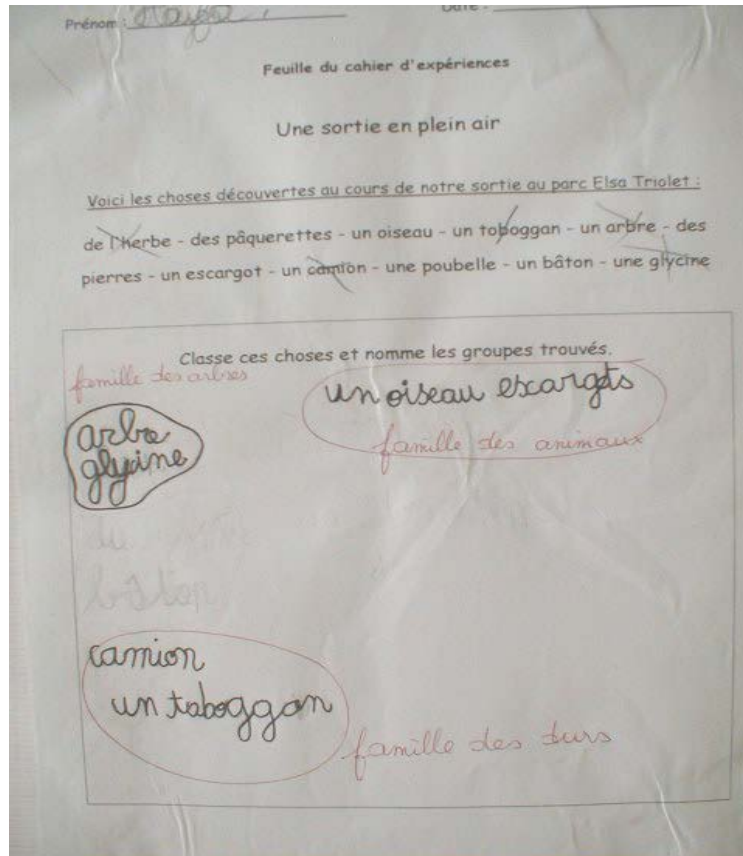 Prénom :
Feuille du cahier d'expériences
Une sortie en plein air
Voici les choses découvertes au cours de notre sortie au parc Elsa Triolet :
de l'herbe - des pâquerettes - un oiseau - un toboggan - un arbre - des
pierres - un escargot - un camion - une poubelle - un bâton - une glycine
Classe ces choses et nomme les groupes trouvés.
famille des arbres
un oiseau escargots
arbre
glycine
famille des animaux
du
bâton
camion
un taboggan
famille des durs